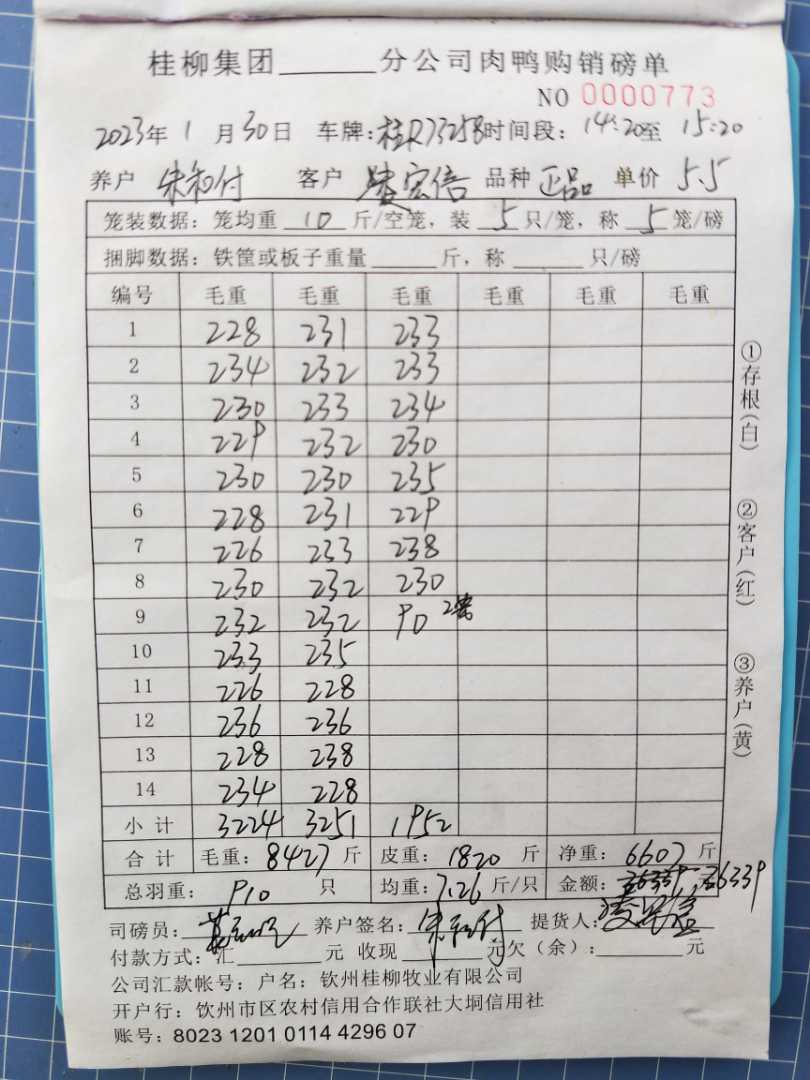 桂柳集团______分公司肉鸭购销磅单
NO 0000773
2023年 1 月 30日 车牌:桂R7325B 时间段: 14:20至 15:20
养户 朱和付 客户 凌宏信 品种 正品 单价 5.5
笼装数据: 笼均重 10 斤/空笼, 装 5 只/笼, 称 5 笼/磅
捆脚数据: 铁筐或板子重量______斤, 称______只/磅
编号 毛重 毛重 毛重 毛重 毛重 毛重
1 228 231 233
2 234 232 233
3 230 233 234
4 229 232 230
5 230 230 235
6 228 231 229
7 226 233 238
8 230 232 230
9 232 232 90 2笼
10 233 235
11 226 228
12 236 236
13 228 238
14 234 228
小计 3224 3251 1952
合计 毛重: 8427 斤 皮重: 1820 斤 净重: 6607 斤
总羽重: 910 只 均重: 7.26 斤/只 金额: 36339
司磅员: 养户签名: 朱和付 提货人: 凌宏信
付款方式: 汇______元 收现______元欠（余）:______元
公司汇款帐号: 户名: 钦州桂柳牧业有限公司
开户行: 饮州市区农村信用合作联社大垌信用社
账号: 8023 1201 0114 4296 07
①存根(白)
②客户(红)
③养户(黄)